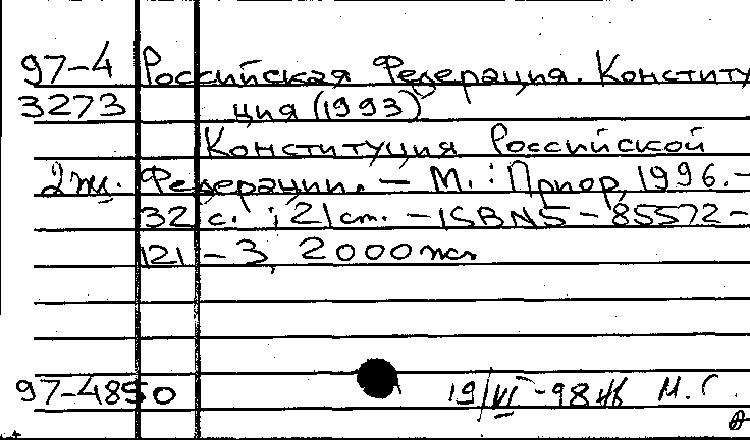 97-4 Российская Федерация. Конститу
3273 ция (1993)
Конституция Российской
2 эк. Федерации. – М. : Приор, 1996. –
32 с. ; 21 cm. – ISBN 5-85572-
121-3, 2000 экз.
97-4850 19/VI-98 М. Г.